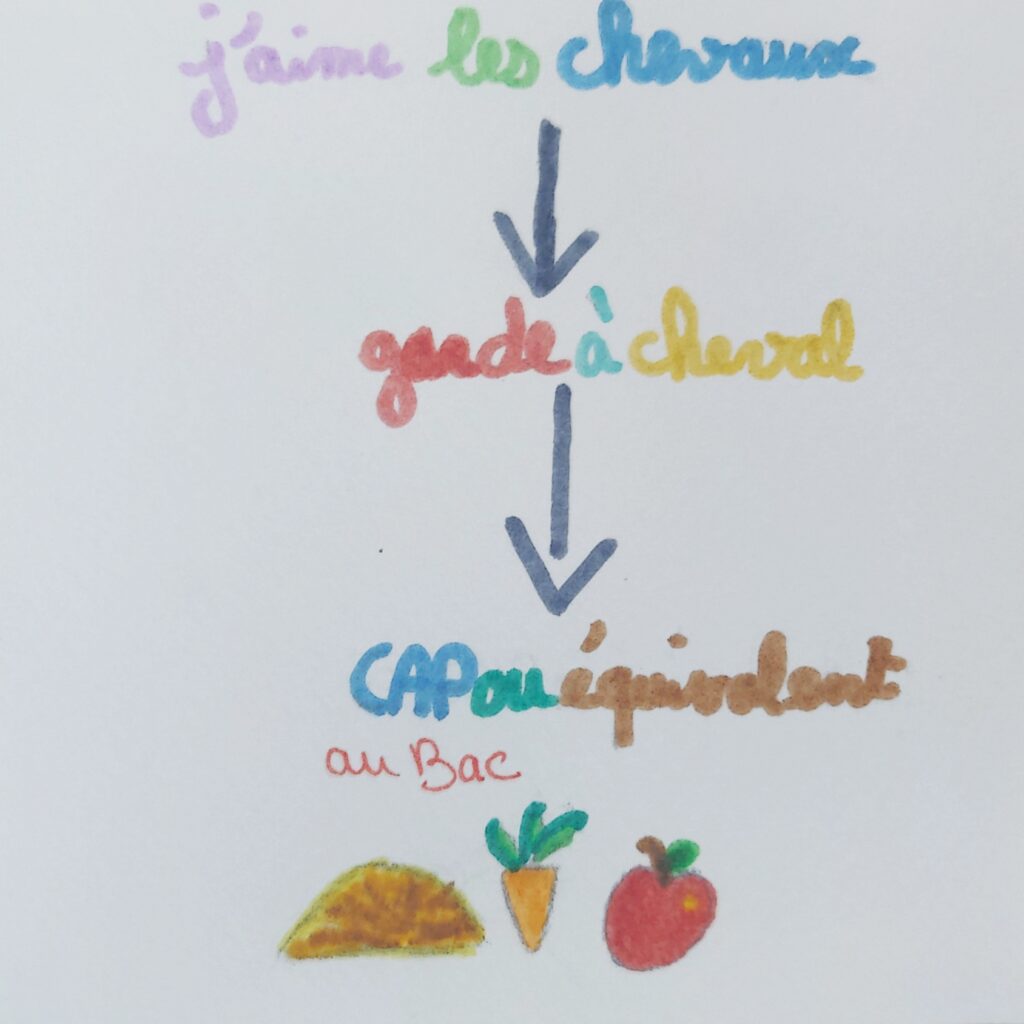 j'aime les chevaux
garde à cheval
CAP ou équivalent
au Bac